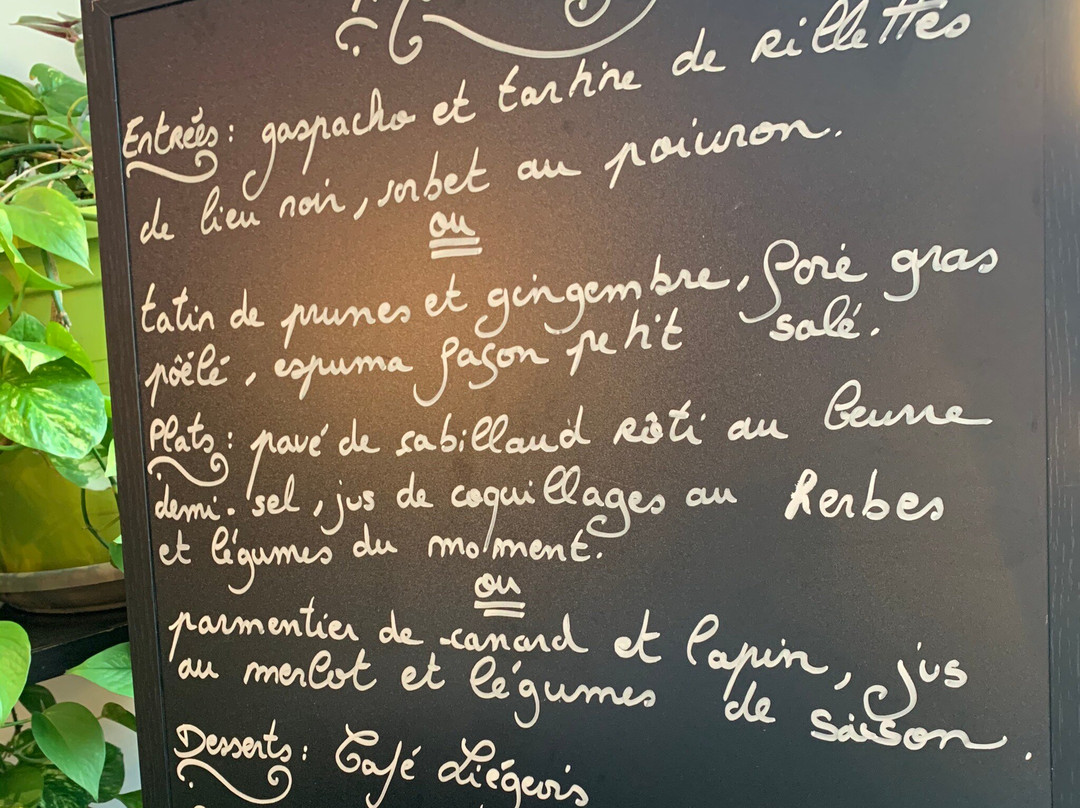 Entrées : gaspacho et tartine de rillettes
de lieu noir, sorbet au poivron.
ou
tatin de prunes et gingembre, foie gras
pôêlé, espuma façon petit salé.
Plats : pavé de sabillaud rôti au beurre
demi-sel, jus de coquillages au herbes
et légumes du moment.
ou
parmentier de canard et lapin, jus
au merlot et légumes de saison.
Desserts : Café Liégeois